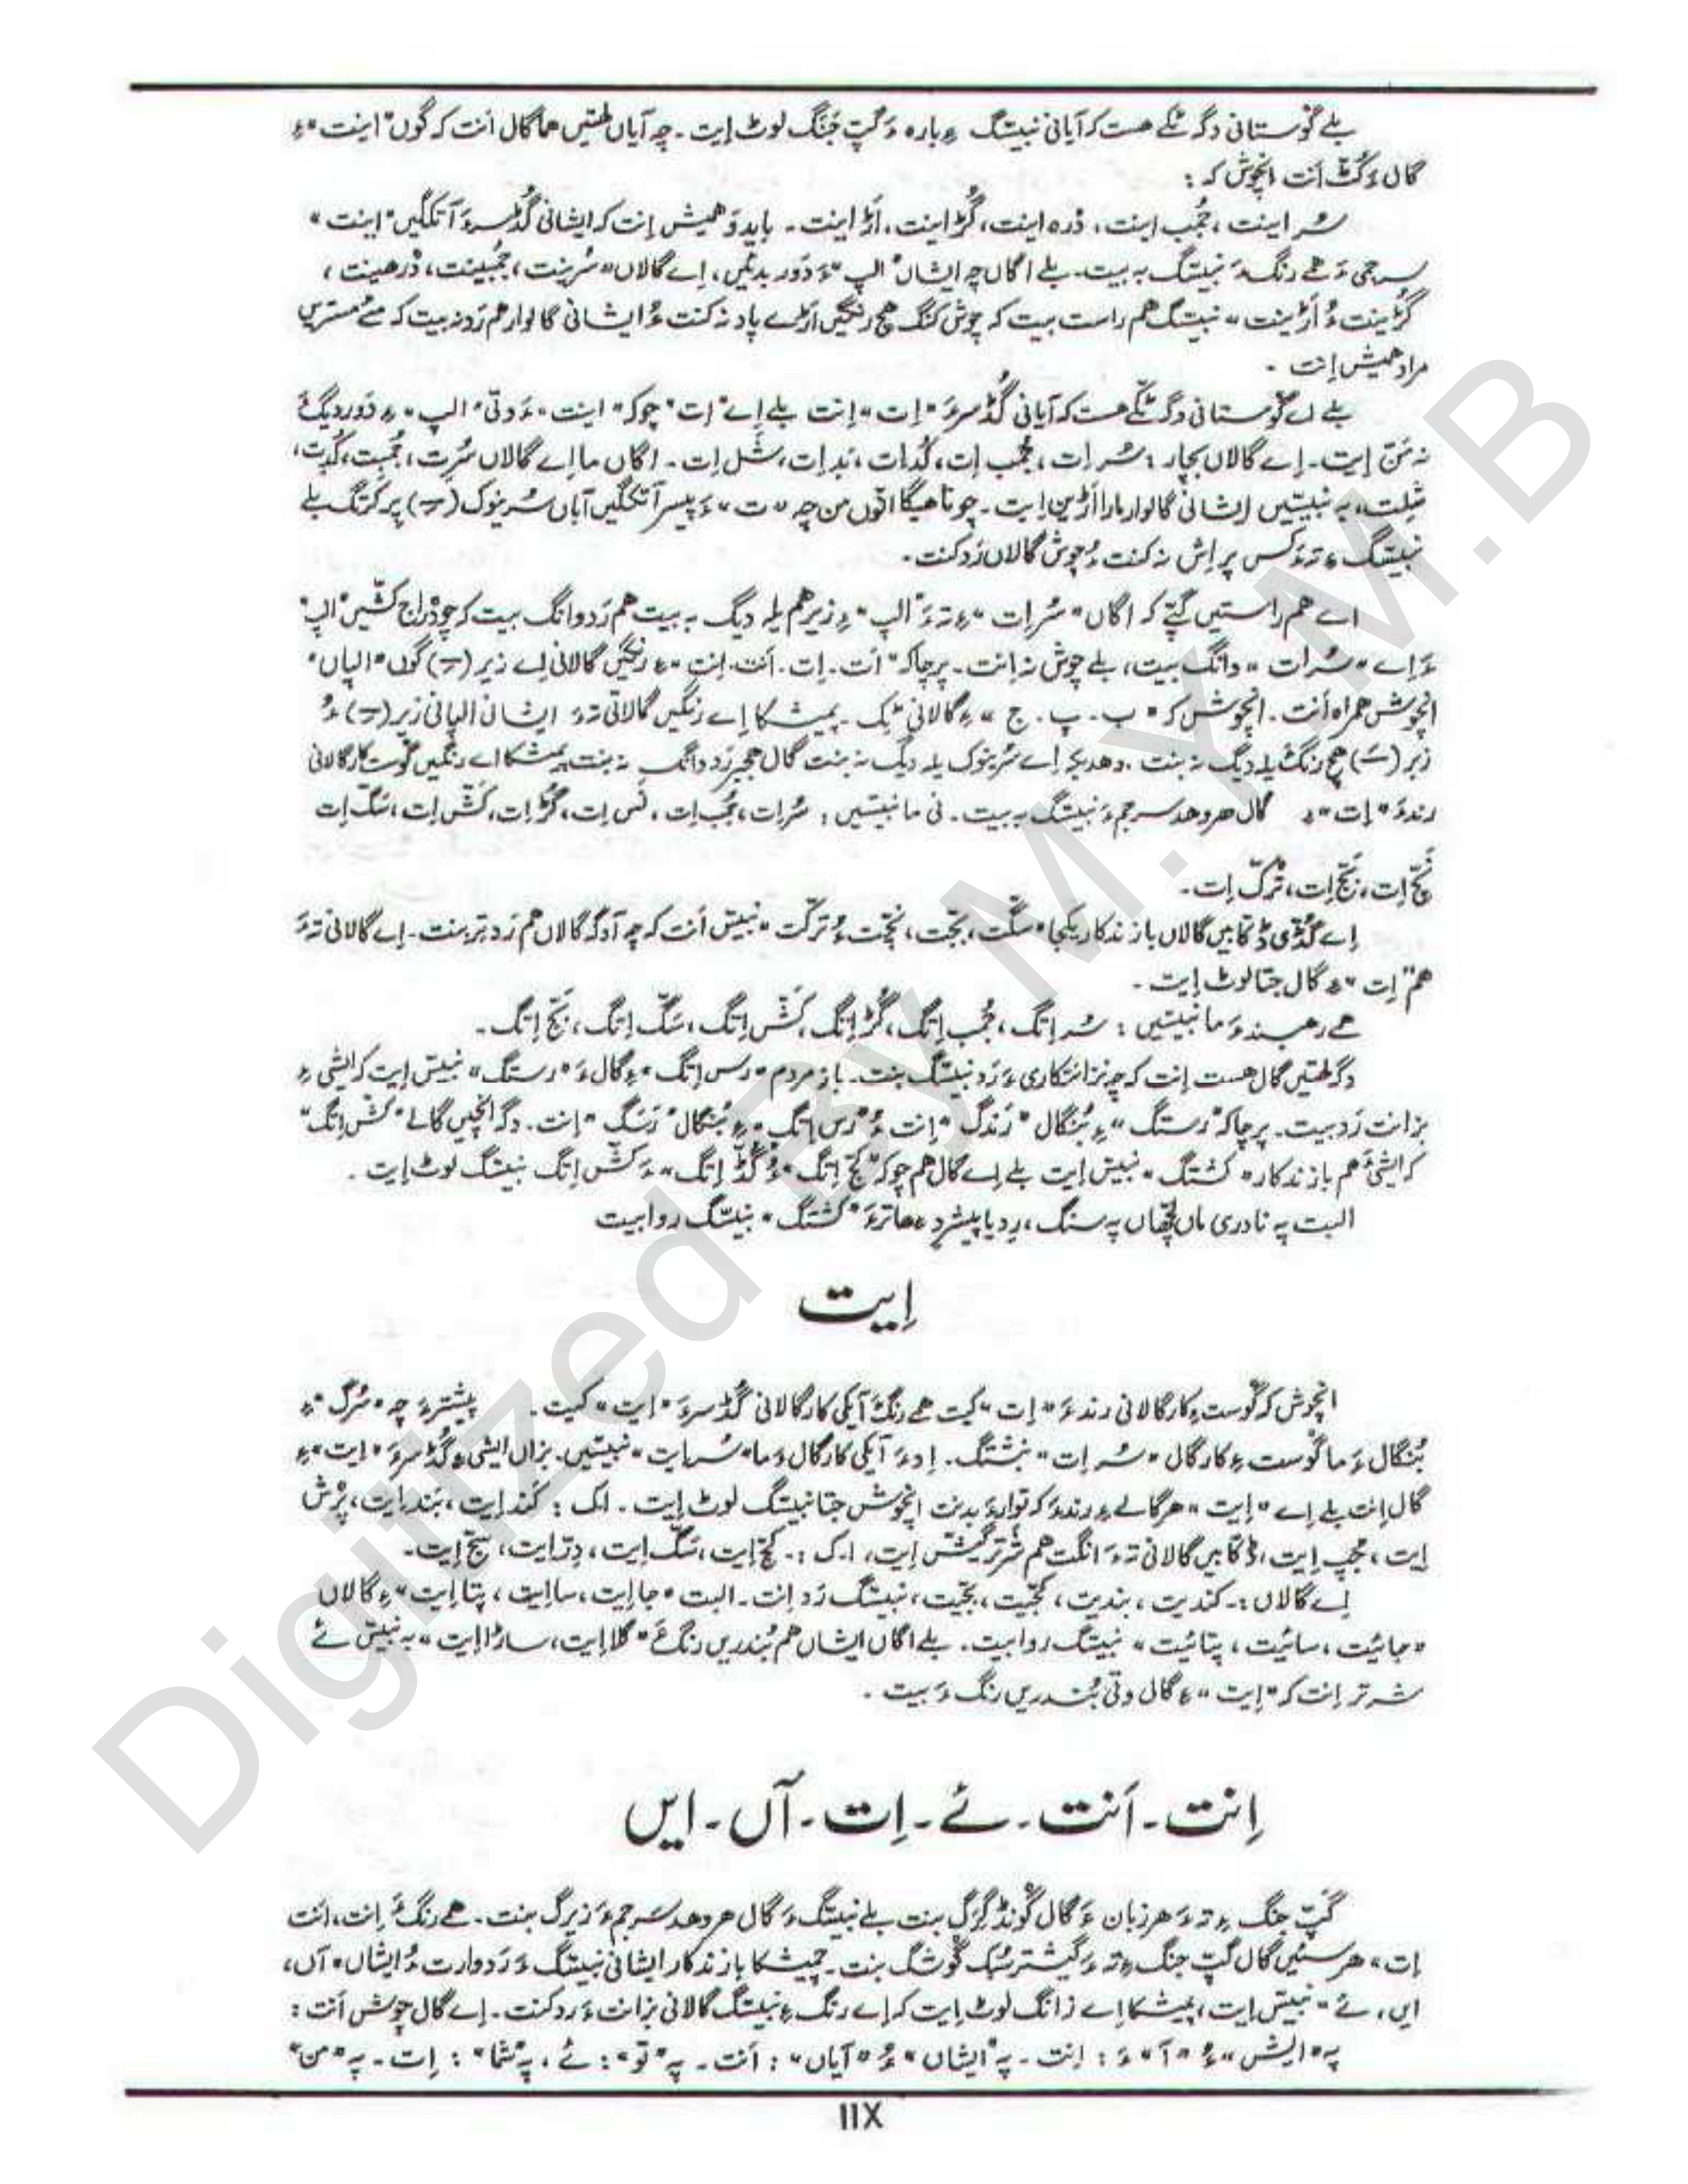 بلے گوستانی دگہ ٹکّے هست کہ آیانی نبیسگ ءِ بارہ ءَ گپ جَنگ لوٹ اِیت ۔ چہ آیاں لهتیں هما گال اَنت کہ گوں "اینت" ءِ
گال ءَ کُٹ اَنت انچوش کہ :
سُر اینت ، جُمب اینت ، دْرہ اینت ، گُڑ اینت ، اَڑ اینت ۔ باید ءَ همیش اِنت کہ ایشانی گُڈسرءَ آتکگیں "اینت"
سرجمی ءَ هے رنگ ءَ نبیسگ بہ بیت ۔ بلے اگاں چہ ایشاں "الپ" ءَ دَور بدئیں ، اِے گالاں "سُرینت ، جُمبینت ، دْرهینت ،
گُڑینت ءُ اَڑینت" نبیسگ هم راست بیت کہ چوش کنگ هچ رنگیں اَڑے پاد نہ کنت ءُ ایشانی گالوار هم رَد نہ بیت کہ مئے مسترین
مراد همیش اِنت ۔
بلے اے گوستانی دگہ ٹکّے هست کہ آیانی گُڈسرءَ "اِت" اِنت بلے اِے "اِت" چوکہ "اینت" ءَ وتی "الپ" ءِ دَور دیگءَ
نہ مَنّ اِیت ۔ اِے گالاں بچار : سُر اِت ، جُمب اِت ، کُد اِت ، بَد اِت ، شَل اِت ۔ اگاں ما اِے گالاں سُرت ، جُمبت ، کُدت ،
شَلت ، بہ نبیسیں ایشانی گالوار مارا اَڑین اِیت ۔
نبیسگ ءِ تہ ءَ کس پر اِش نہ کنت ءُ چوش گالاں رَد کنت ۔
اے هم راستیں گپّے کہ اگاں "سُر اِت" ءِ تہ ءَ "الپ" ءِ زیر هم یلہ دیگ بہ بیت هم رَد وانگ بیت کہ چو دْراج کشّیں "الپ"
ءَ اِے "سُرات" وانگ بیت ، بلے چوش نہ اِنت ۔ پرچاکہ "اَت ۔ اِت ۔ اَنت ۔ اِنت" ءِ رنگیں گالانی اِے زیر (ـِ) گوں "الپاں"
انچوش همراہ اَنت ۔ انچوش کہ "ب ۔ پ ۔ ج" ءِ گالانی ٹِک ۔ پمیشکا اِے رنگیں گالانی تہ ءَ ایشاں الپانی زیر (ـِ) ءُ
زبر (ـَ) هچ رنگ یلہ دیگ نہ بنت ۔ وهدیکہ اِے سُرینوک یلہ دیگ نہ بنت گال هچبر رَد وانگ نہ بنت پمیشکا اے رنگیں گوست کار گالانی
رندءَ "اِت" ءِ گال هروهد سرجم ءَ نبیسگ بہ بیت ۔ نی ما نبیسیں : سُر اِت ، جُمب اِت ، نَس اِت ، گُڑ اِت ، کَشّ اِت ، سَگّ اِت
نَچّ اِت ، بَجّ اِت ، تُرکّ اِت ۔
اِے گُڈّی ڈکّابیں گالاں باز ندکار یکجا "سگّت ، بجّت ، نچّت ءُ ترکّت" نبیس اَنت کہ چہ آدگہ گالاں هم رَدتر بنت ۔ اِے گالانی تہ ءَ
هم "اِت" ءِ گال جتا لوٹ اِیت ۔
هے رهبند ءَ ما نبیسیں : سُر اِتگ ، جُمب اِتگ ، گُڑ اِتگ ، کَشّ اِتگ ، سَگّ اِتگ ، بَجّ اِتگ ۔
دگہ لهتیں گال هست اِنت کہ چہ نزانتکاری ءَ رَد نبیسگ بنت ۔ باز مردم "رس اِتگ" ءِ گال ءَ "رستگ" نبیس اِیت کہ ایشی ءِ
بزانت رَد بیت ۔ پرچاکہ "رستگ" ءِ بُنگال "رَندگ" اِنت ءُ "رس اِتگ" ءِ بُنگال "رَسگ" اِنت ۔ دگہ انچیں گالے "کَشّ اِتگ"
کہ ایشی ءَ هم باز ندکار "کشتگ" نبیس اِیت بلے اِے گال هم چوکہ "کچّ اِتگ" ءُ "گُڈّ اِتگ" ءَ کَشّ اِتگ نبیسگ لوٹ اِیت ۔
البت پہ نادری ماں لچّهاں پہ سنگ ، رِد یا پیشرد ءِ هاترءَ "کشتگ" نبیسگ روا بیت
اِیت
انچوش کہ گوست ءِ کار گالانی رندءَ "اِت" کیت هے رنگءَ آیکی کار گالانی گُڈسرءَ "اِیت" کیت ۔ پیشترءَ چہ "سُرگ" ءِ
بُنگال ءَ ما گوست ءِ کار گال "سُر اِت" نبشتگ ۔ اِدءَ آیکی کار گال ءَ ما "سُر اِیت" نبیسیں ۔ بزاں ایشی ءِ گُڈسرءَ "اِیت" ءِ
گال اِنت بلے اِے "اِیت" هر گالے ءِ رندءَ کہ توار بدنت انچوش جتا نبیسگ لوٹ اِیت ۔ اک : کَند اِیت ، بَند اِیت ، پرْش
اِیت ، مُچّ اِیت ، ڈکّابیں گالانی تہ ءَ انگت هم شَرتر گِندگ اِیت ، ا۔ک :۔ کچّ اِیت ، سَگّ اِیت ، دِرّ اِیت ، بجّ اِیت ۔
اِے گالاں :۔ کندیت ، بندیت ، کچّیت ، بجّیت ، نبیسگ رَد اِنت ۔ البت "جا اِیت ، سا اِیت ، پتا اِیت" ءِ گالاں
"جائیت ، سائیت ، پتائیت" نبیسگ روا بیت ۔ بلے اگاں ایشاں هم بُندریں رنگءَ "گلا اِیت ، ساڑا اِیت" بہ نبیس ئے
شرتر اِنت کہ "اِیت" ءِ گال وتی بُندریں رنگ ءَ بیت ۔
اِنت ۔ اَنت ۔ ئے ۔ اِت ۔ آں ۔ ایں
گپ جنگ ءِ تہ ءَ هر زبان ءَ گال گونڈ گرگ بنت بلے نبیسگ ءَ گال هروهد سرجم ءَ زیرگ بنت ۔ هے رنگءَ اِنت ، اَنت
اِت ، هر سئیں گال گپ جنگ ءِ تہ ءَ گیشتر سُبک گوشگ بنت ۔ چمیشکا باز ندکار ایشانی نبیسگ ءَ رَد وارت ءُ ایشاں "آں ،
ایں ، ئے" نبیس اِیت ، پمیشکا اِے زانگ لوٹ اِیت کہ اے رنگ ءِ نبیسگ گالانی بزانت ءَ رد کنت ۔ اِے گال چوش اَنت :
پہ "ایش" ءُ "آ" ءَ : اِنت ۔ پہ "ایشاں" ءُ "آیاں" : اَنت ۔ پہ "تو" : ئے ، پہ "شما" : اِت ۔ پہ "من"
IIX
Digitized By M.Y.M.B